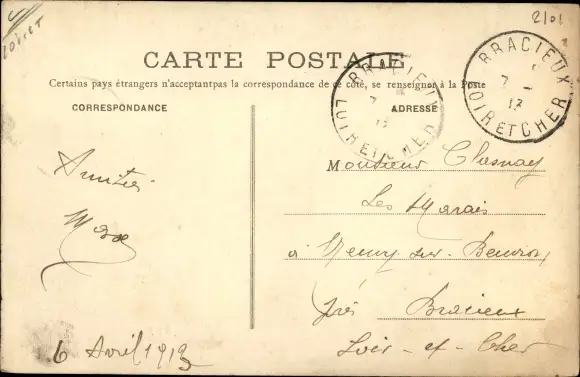 Loiret
2101
CARTE POSTALE
Certains pays étrangers n'acceptantpas la correspondance de ce côté, se renseigner à la Poste
CORRESPONDANCE
ADRESSE
BRACIEUX
7
13
LOIR ET CHER
BRACIEUX
7
13
LOIR ET CHER
Amitiés
Monsieur Chesnay
Les Marais
à Neuvy sur Beuvron
près Bracieux
Loir-et-Cher
6 Avril 1913